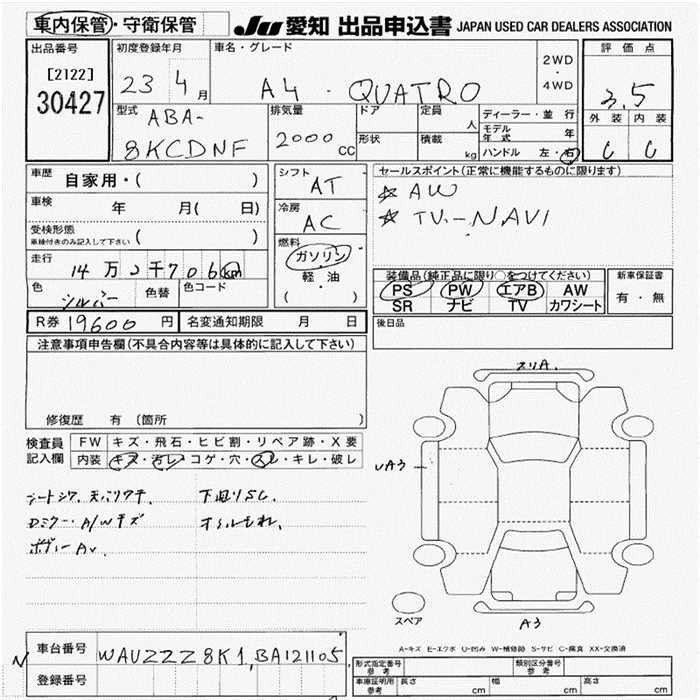 車内保管・守衛保管 JU 愛知 出品申込書 JAPAN USED CAR DEALERS ASSOCIATION
出品番号 初度登録年月 車名・グレード 評価点
[2122] 2WD
30427 23 4月 A4 ・ QUATRO 4WD 3.5
型式 排気量 ドア 定員 人 ディーラー・並行 外装 内装
ABA- モデル年式 年
8KCDNF 2000cc 形状 積載 kg ハンドル 左・右 C C
車歴 自家用・( ) シフト AT セールスポイント(正常に機能するものに限ります)
車検 年 月( 日) 冷房 AC ☆ AW
受検形態 ( ) ☆ TV-NAVI
車検付きのみ記入して下さい
燃料
走行 14万2千706km ガソリン 装備品(純正品に限り○をつけてください) 新車保証書
色 シルバー 色替 色コード 軽・油 PS PW エアB AW 有・無
( ) SR ナビ TV カワシート
R券 19600円 名変通知期限 月 日 後日品
注意事項申告欄(不具合内容等は具体的に記入して下さい)
修復歴 有 (箇所 )
検査員 FW キズ・飛石・ヒビ割・リペア跡・X要
記入欄 内装 キズ・汚レ・コゲ・穴・スレ・キレ・破レ
スリA.
UA3
A3
シートシワ. 下回りSC.
A/Wキズ オイルもれ.
ボディーAU.
スペア
A-キズ E-エクボ U-凹み W-補修跡 S-サビ C-腐食 XX-交換済
車台番号 WAUZZZ8K1,BA121105
N
登録番号
形式指定番号 参考 類別区分番号 参考
車庫証明用 参考 長さ cm 幅 cm 高さ cm